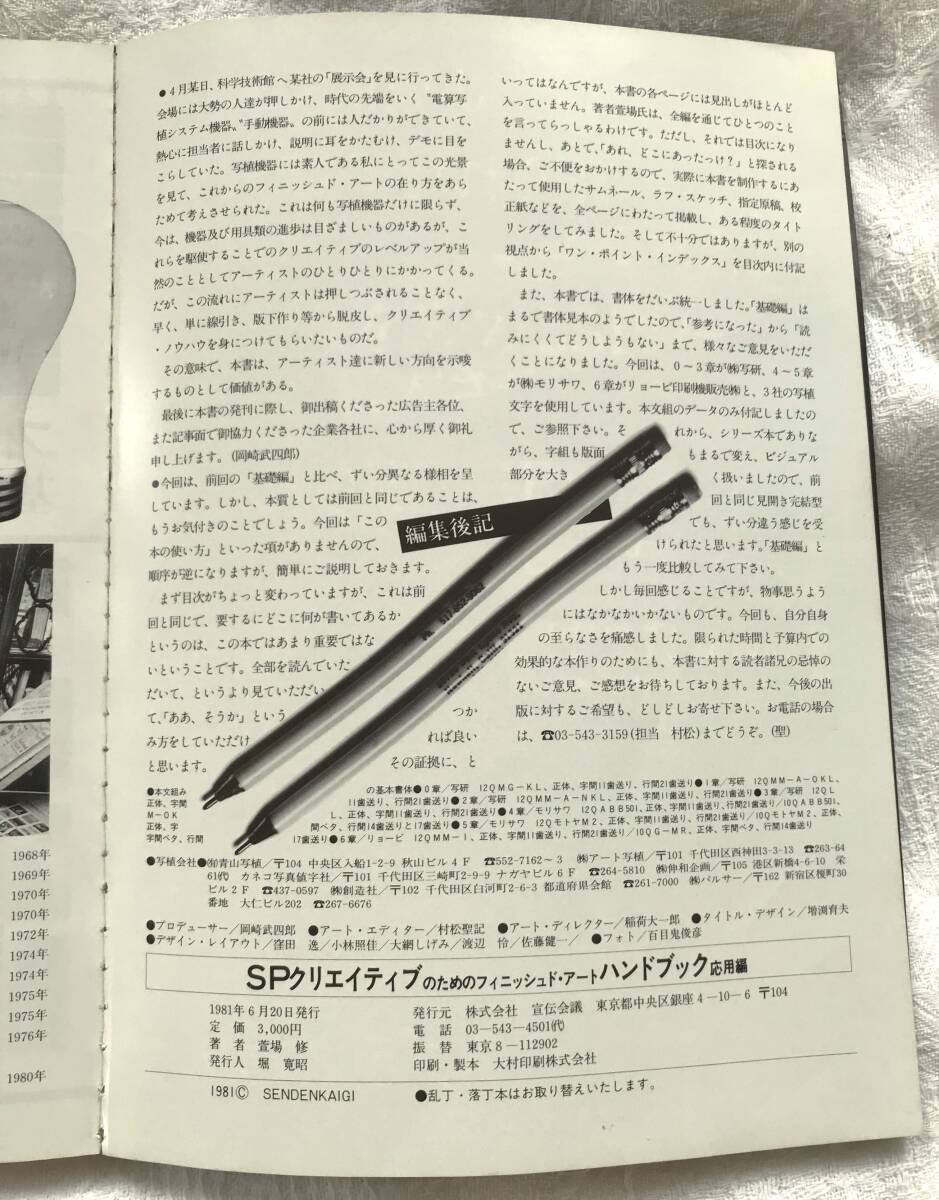 ●4月某日、科学技術館へ某社の「展示会」を見に行ってきた。
会場には大勢の人達が押しかけ、時代の先端をいく〝電算写
植システム機器〟〝手動機器〟の前には人だかりができていて、
熱心に担当者に話しかけ、説明に耳をかたむけ、デモに目を
こらしていた。写植機器には素人である私にとってこの光景
を見て、これからのフィニッシュド・アートの在り方をあら
ためて考えさせられた。これは何も写植機器だけに限らず、
今は、機器及び用具類の進歩は目ざましいものがあるが、こ
れらを駆使することでのクリエイティブのレベルアップが当
然のこととしてアーティストのひとりひとりにかかってくる。
だが、この流れにアーティストは押しつぶされることなく、
早く、単に線引き、版下作り等から脱皮し、クリエイティブ
・ノウハウを身につけてもらいたいものだ。
その意味で、本書は、アーティスト達に新しい方向を示唆
するものとして価値がある。
最後に本書の発刊に際し、御出稿くださった広告主各位、
また記事面で御協力くださった企業各社に、心から厚く御礼
申し上げます。(岡崎武四郎)
●今回は、前回の「基礎編」と比べ、ずい分異なる様相を呈
しています。しかし、本質としては前回と同じであることは、
もうお気付きのことでしょう。今回は「この
本の使い方」といった項がありませんので、
順序が逆になりますが、簡単にご説明しておきます。
まず目次がちょっと変わっていますが、これは前
回と同じで、要するにどこに何が書いてあるか
というのは、この本ではあまり重要ではな
いということです。全部を読んでいた
だいて、というより見ていただい
て、「ああ、そうか」という つか
み方をしていただけ れば良い
と思います。 その証拠に、と
いってはなんですが、本書の各ページには見出しがほとんど
入っていません。著者萱場氏は、全編を通じてひとつのこと
を言ってらっしゃるわけです。ただし、それでは目次になり
ませんし、あとで、「あれ、どこにあったっけ?」と探される
場合、ご不便をおかけするので、実際に本書を制作するにあ
たって使用したサムネール、ラフ・スケッチ、指定原稿、校
正紙などを、全ページにわたって掲載し、ある程度のタイト
リングをしてみました。そして不十分ではありますが、別の
視点から「ワン・ポイント・インデックス」を目次内に付記
しました。
また、本書では、書体をだいぶ統一しました。「基礎編」は
まるで書体見本のようでしたので、「参考になった」から「読
みにくくてどうしようもない」まで、様々なご意見をいただ
くことになりました。今回は、0~3章が㈱写研、4~5章
が㈱モリサワ、6章がリョービ印刷機販売㈱と、3社の写植
文字を使用しています。本文組のデータのみ付記しましたの
で、ご参照下さい。そ れから、シリーズ本でありな
がら、字組も版面 もまるで変え、ビジュアル
部分を大き く扱いましたので、前
回と同じ見開き完結型
でも、ずい分違う感じを受
けられたと思います。「基礎編」と
もう一度比較してみて下さい。
しかし毎回感じることですが、物事思うよう
にはなかなかいかないものです。今回も、自分自身
の至らなさを痛感しました。限られた時間と予算内での
効果的な本作りのためにも、本書に対する読者諸兄の忌憚の
ないご意見、ご感想をお待ちしております。また、今後の出
版に対するご希望も、どしどしお寄せ下さい。お電話の場合
は、☎03-543-3159(担当 村松)までどうぞ。(聖)
編集後記
●本文組み の基本書体●0章/写研 12QMG-KL、正体、字間11歯送り、行間21歯送り●1章/写研 12QMM-A-OKL、
正体、字間 11歯送り、行間21歯送り●2章/写研 12QMM-A-NKL、正体、字間11歯送り、行間21歯送り●3章/写研 12QL
M-OK L、正体、字間11歯送り、行間21歯送り●4章/モリサワ 12QABB501、正体、字間11歯送り、行間21歯送り/10QABB501、
正体、字 間ベタ、行間14歯送りと17歯送り●5章/モリサワ 12QモトヤM2、正体、字間11歯送り、行間21歯送り/10QモトヤM2、正体、
字間ベタ、行間 17歯送り●6章/リョービ 12QMM-I、正体、字間11歯送り、行間21歯送り/10QG-MR、正体、字間ベタ、行間14歯送り
●写植会社●㈲青山写植/〒104 中央区入船1-2-9 秋山ビル4F ☎552-7162~3 ㈱アート写植/〒101 千代田区西神田3-3-13 ☎263-64
61代 カネコ写真植字社/〒101 千代田区三崎町2-9-9 ナガヤビル6F ☎264-5810 ㈱伸和企画/〒105 港区新橋4-6-10 栄
ビル2F ☎437-0597 ㈱創造社/〒102 千代田区平河町2-6-3 都道府県会館 ☎261-7000 ㈱パルサー/〒162 新宿区榎町30
番地 大仁ビル202 ☎267-6676
●プロデューサー/岡崎武四郎 ●アート・エディター/村松聖記 ●アート・ディレクター/稲荷大一郎 ●タイトル・デザイン/増渕育夫
●デザイン・レイアウト/窪田 逸/小林照佳/大網しげみ/渡辺 怜/佐藤健一/ ●フォト/百目鬼俊彦
SPクリエイティブのためのフィニッシュド・アートハンドブック応用編
1981年6月20日発行
定 価 3,000円
著 者 萱場 修
発行人 堀 寛昭
発行元 株式会社 宣伝会議 東京都中央区銀座4-10-6 〒104
電 話 03-543-4501代
振 替 東京8-112902
印刷・製本 大村印刷株式会社
1981© SENDENKAIGI ●乱丁・落丁本はお取り替えいたします。
1968年
1969年
1970年
1970年
1972年
1974年
1974年
1975年
1975年
1976年
1980年